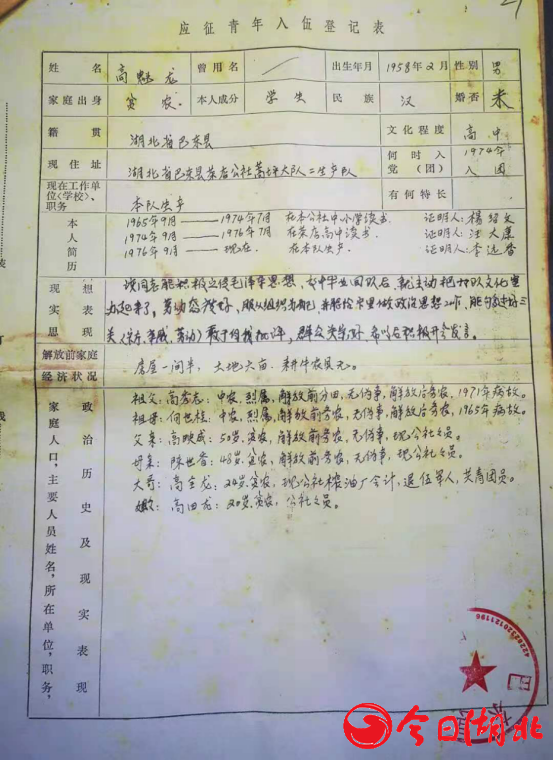 应征青年入伍登记表
姓名 高魁龙 曾用名 出生年月 1958年2月 性别 男
家庭出身 贫农 本人成分 学生 民族 汉 婚否 未
籍贯 湖北省巴东县 文化程度 高中
现住址 湖北省巴东县茶店公社 大队二生产队 何时入党(团) 1974年入团
现在工作单位(学校)、职务 本队生产 有何特长
本人简历
1965年9月——1974年7月 在本公社中小学读书 证明人:杨
1974年9月——1976年7月 在茶店高中读书 证明人:汪大
1976年9月——现在 在本队生产 证明人:李远香
现实思想表现
该同志能积极宣传毛泽东思想,高中毕业回队后,就主动把
办起来了,劳动态度好,服从组织分配,政治思想工作,能
敢于自我批评,群众关系好,希以后积极开会发言。
解放前家庭经济状况 房屋一间半,土地六亩,耕牛农具无。
家庭人口,主要人员姓名,所在单位,职务,
政治历史及现实表现
祖父:高 志:中农,烈属,解放前务农,无伪事,解放后务农,1971年病故。
祖母:何世桂:中农,烈属,解放前务农,无伪事,解放后务农,1965年病故。
父亲:高映成:50岁,贫农,解放前务农,无伪事,现公社社员。
母亲:陈世香:48岁,贫农,解放前务农,无伪事,现公社社员。
大哥:高全龙:24岁,贫农,现公社榨油厂会计,退伍军人,共青团员。
高田龙:20岁,贫农,公社社员。
4228232012196
今日湖北